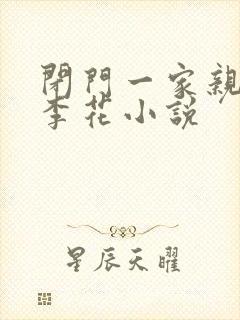 閉門一家親
李花小說
星辰天曜